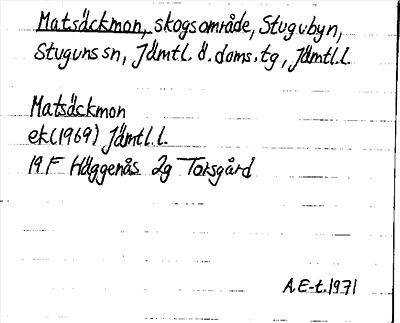 Matsäckmon, skogsområde, Stugubyn,
Stuguns sn, Jämtl. ö. doms. tg, Jämtl. l.
Matsäckmon
ek (1969) Jämtl. l.
19 F Häggenås 2g Torsgård
A.E-t. 1971